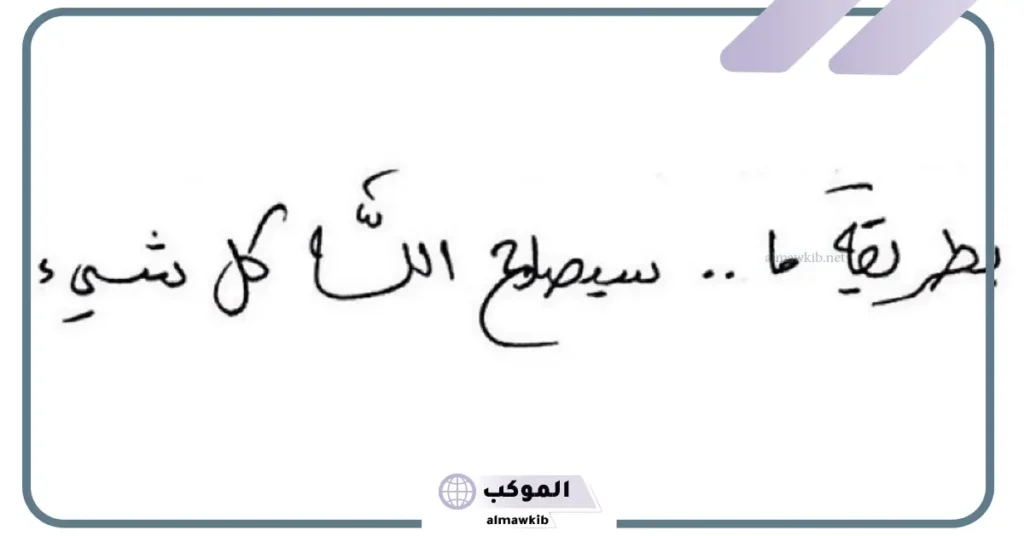 بطريقة ما .. سيصلح الله كل شيء
almawkib.net
الموكب
almawkib